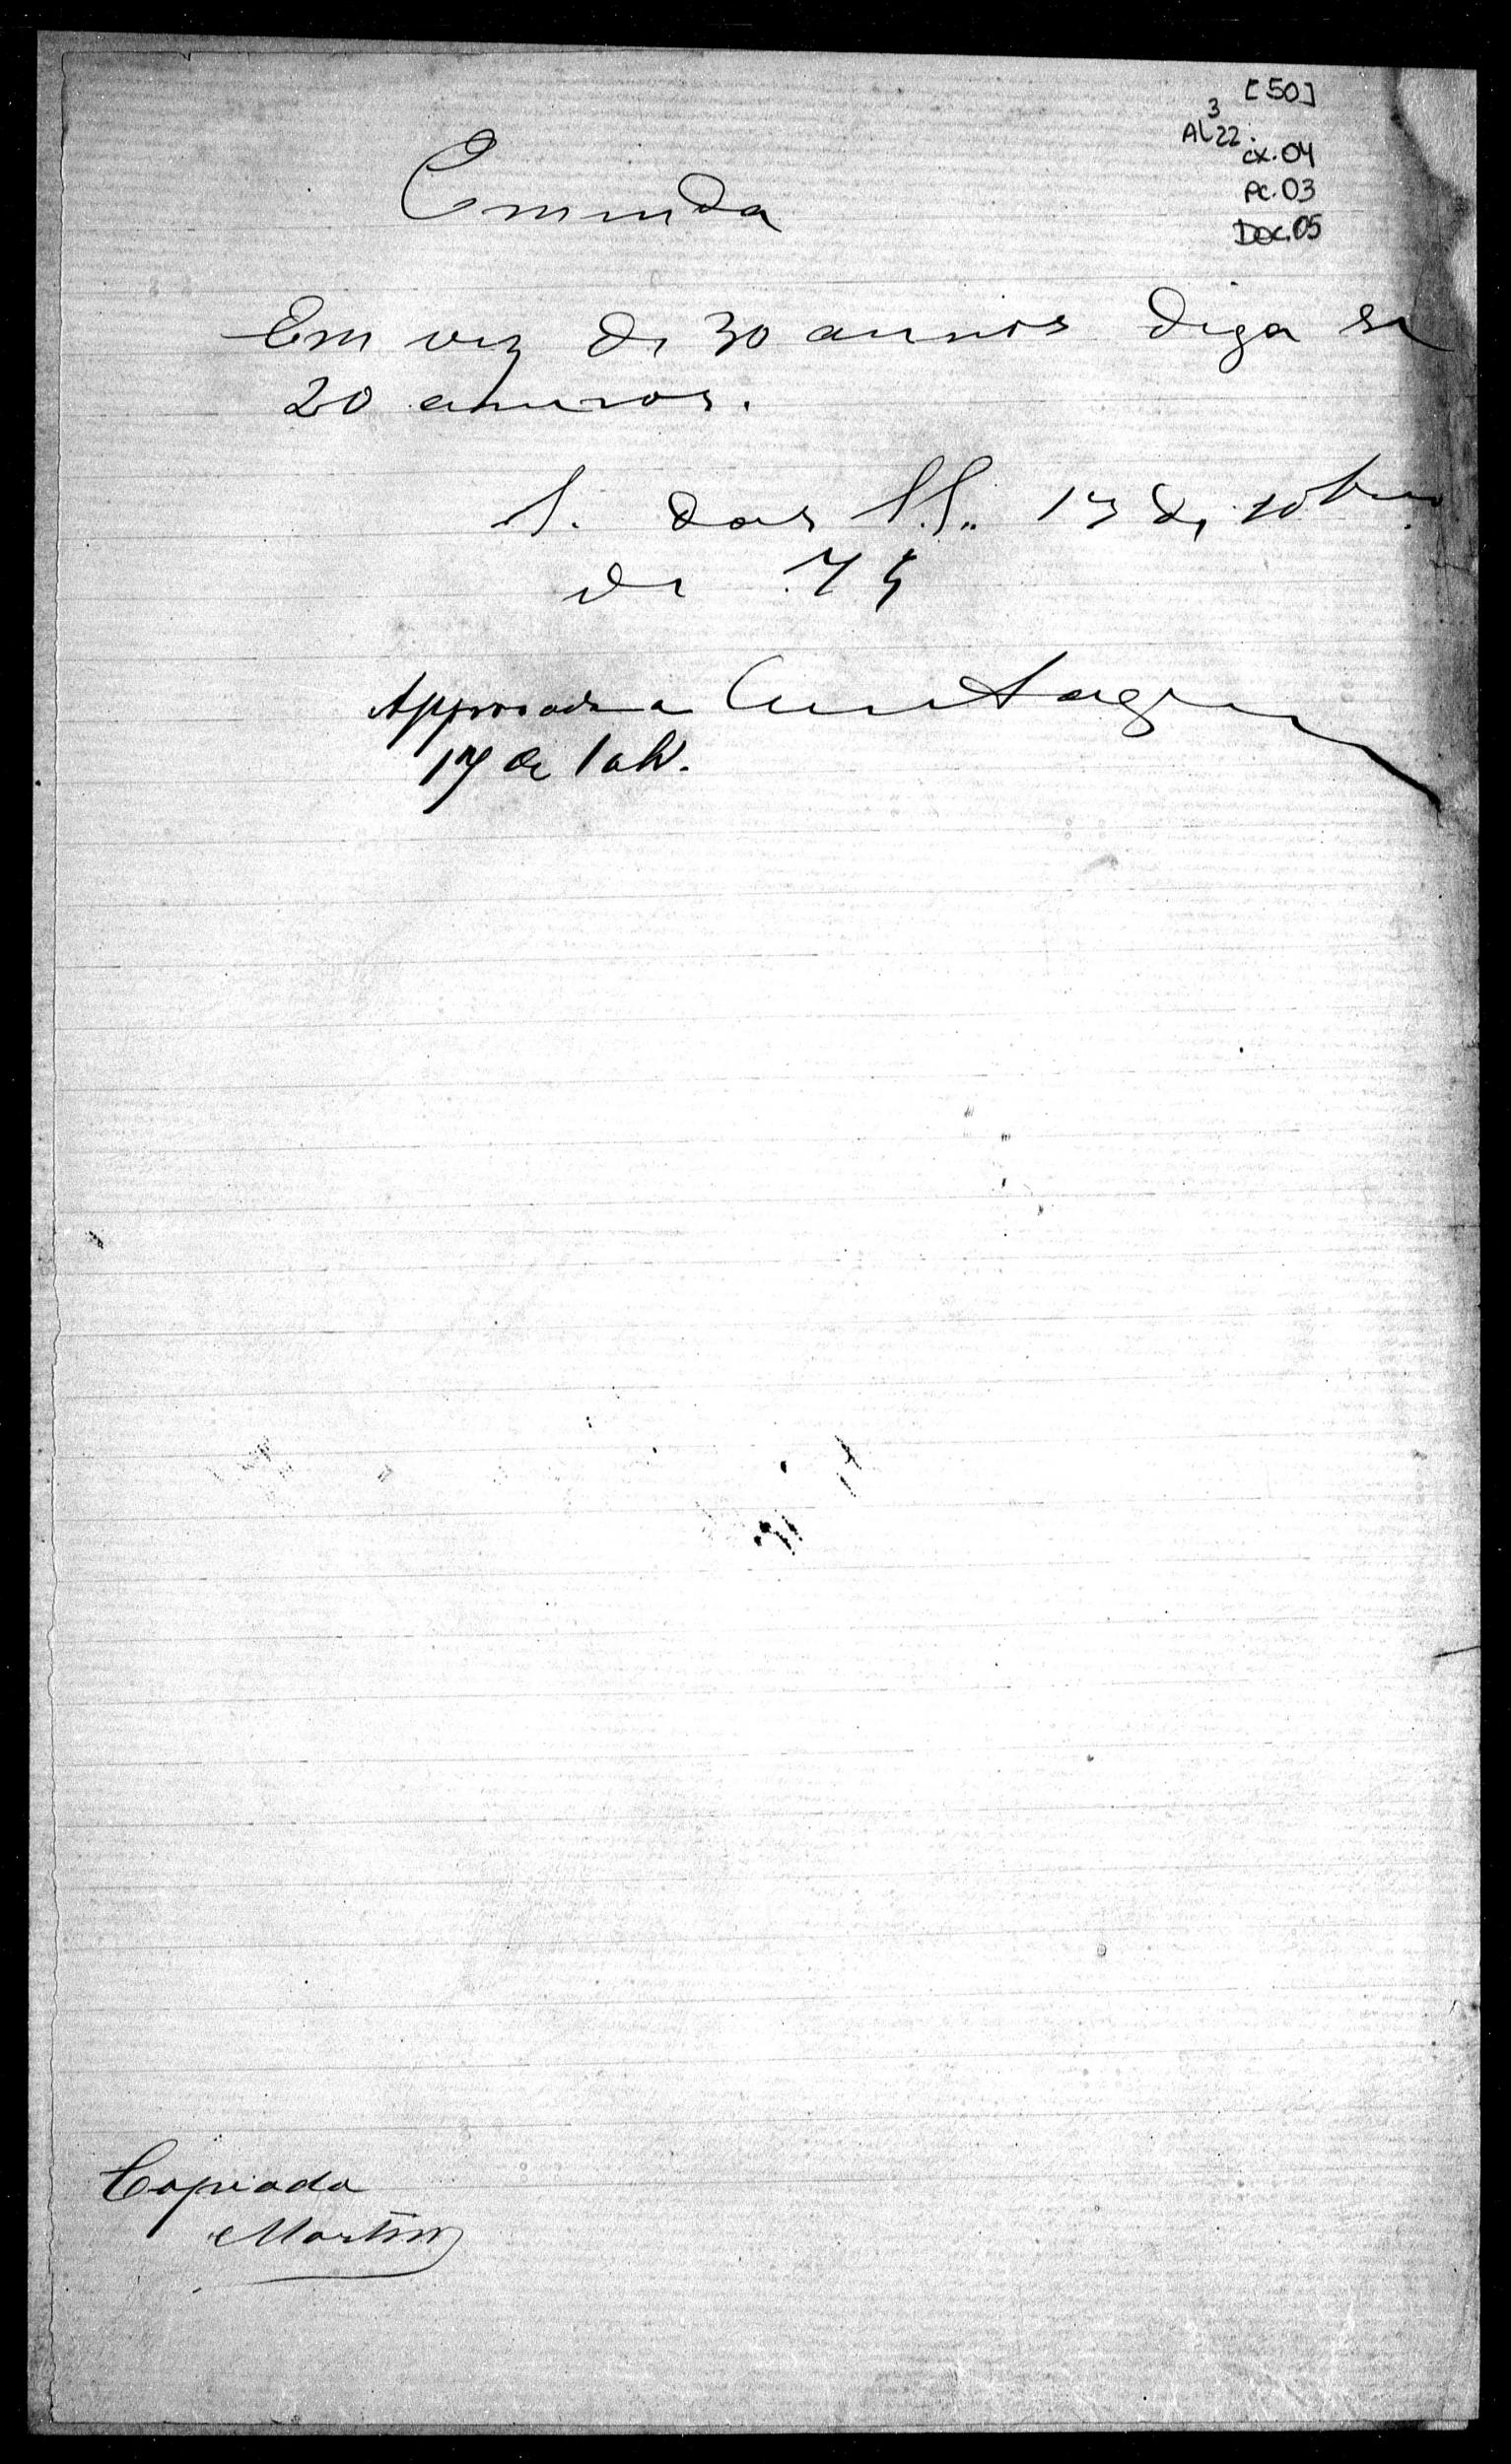 [50]
AL 22.3
cx.04
Pc.03
Doc.05
Emenda
Em vez de 30 annos diga se
20 annos.
S. das S.S. 17 de 10bro
de 75
Approvada
17 de 10br.
Copiada
Martins